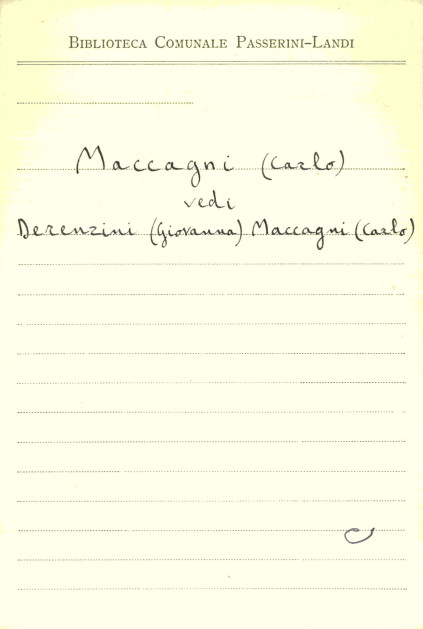 BIBLIOTECA COMUNALE PASSERINI-LANDI
Maccagni (Carlo)
vedi
Derenzini (Giovanna) Maccagni (Carlo)